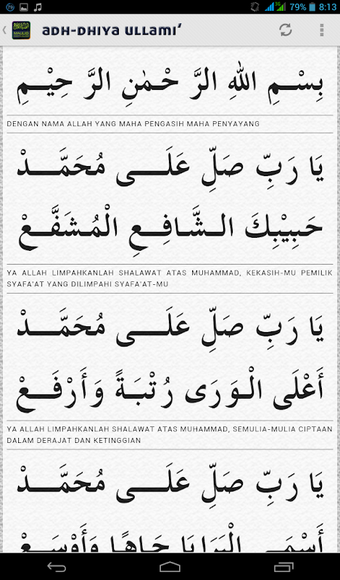 79% 8:13
ADH-DHIYA ULLAMI'
بِسْـمِ اللهِ الرَّ حْـمٰنِ الرَّ حِيْـمِ
DENGAN NAMA ALLAH YANG MAHA PENGASIH MAHA PENYAYANG
يَا رَبِّ صَلِّ عَلَـــى مُحَمَّـــدْ
حَبِيْبِكَ الــشَّـافِـعِ الْمُـشَفَّـعْ
YA ALLAH LIMPAHKANLAH SHALAWAT ATAS MUHAMMAD, KEKASIH-MU PEMILIK
SYAFA'AT YANG DILIMPAHI SYAFA'AT-MU
يَا رَبِّ صَلِّ عَلَـــى مُحَمَّـــدْ
أَعْلَى الْـوَرَى رُتْبَـةً وَأَرْفَــعْ
YA ALLAH LIMPAHKANLAH SHALAWAT ATAS MUHAMMAD, SEMULIA-MULIA CIPTAAN
DALAM DERAJAT DAN KETINGGIAN
يَا رَبِّ صَلِّ عَلَـــى مُحَمَّـــدْ
أَسْمَـى الْبَرَايَا جَاهًـا وَأَوْسَـعْ